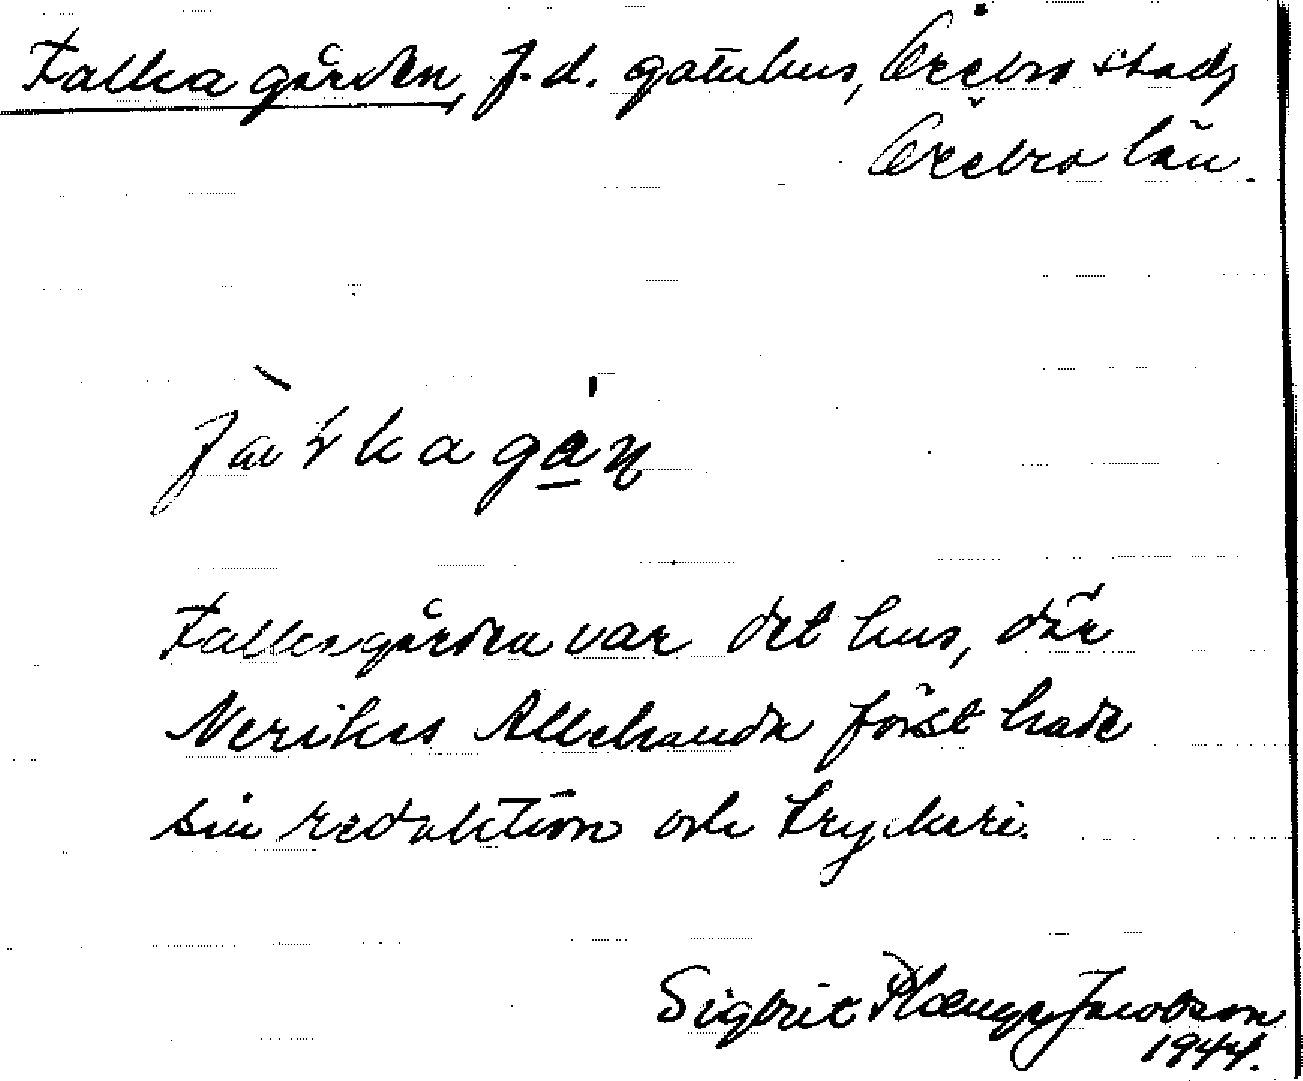 Falka gården, f.d. gatuhus, Örebro stad,
Örebro län.
Falkagården var det hus, där
Nerikes Allehanda först hade
sin redaktion och tryckeri.
Sigbrit Plænge Jacobson
1944.